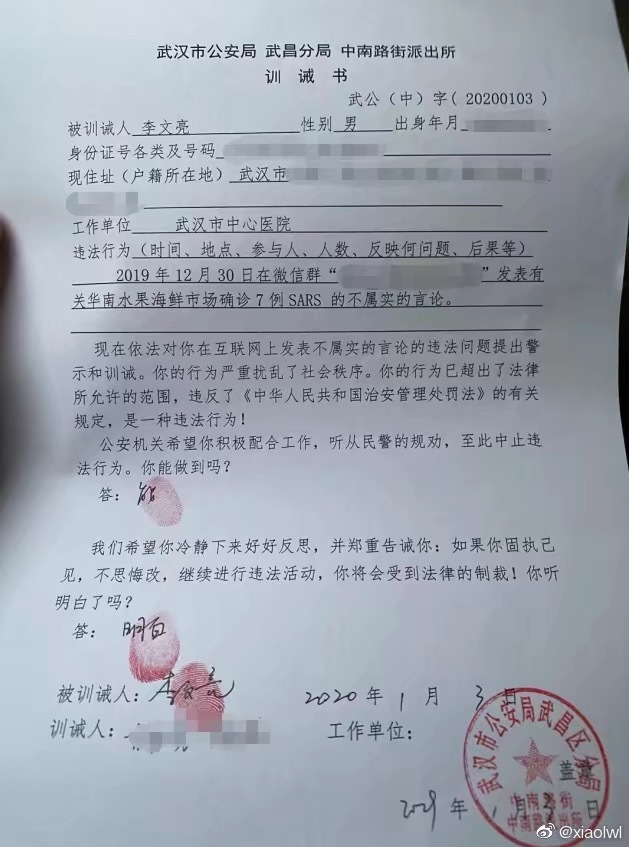 武汉市公安局 武昌分局 中南路街派出所
训 诫 书
武公（中）字（20200103）
被训诫人 李文亮 性别 男 出身年月
身份证号各类及号码
现住址（户籍所在地） 武汉市
工作单位 武汉市中心医院
违法行为（时间、地点、参与人、人数、反映何问题、后果等）
2019年12月30日在微信群“ ”发表有
关华南水果海鲜市场确诊7例SARS的不属实的言论。
现在依法对你在互联网上发表不属实的言论的违法问题提出警
示和训诫。你的行为严重扰乱了社会秩序。你的行为已超出了法律
所允许的范围，违反了《中华人民共和国治安管理处罚法》的有关
规定，是一种违法行为！
公安机关希望你积极配合工作，听从民警的规劝，至此中止违
法行为。你能做到吗？
答：能
我们希望你冷静下来好好反思，并郑重告诫你：如果你固执己
见，不思悔改，继续进行违法活动，你将会受到法律的制裁！你听
明白了吗？
答：明白
被训诫人：李文亮 2020年1月3日
训诫人： 工作单位：
武汉市公安局武昌区分局
盖章
中南路街
中南路派出所
年1月3日
@xiaolwl